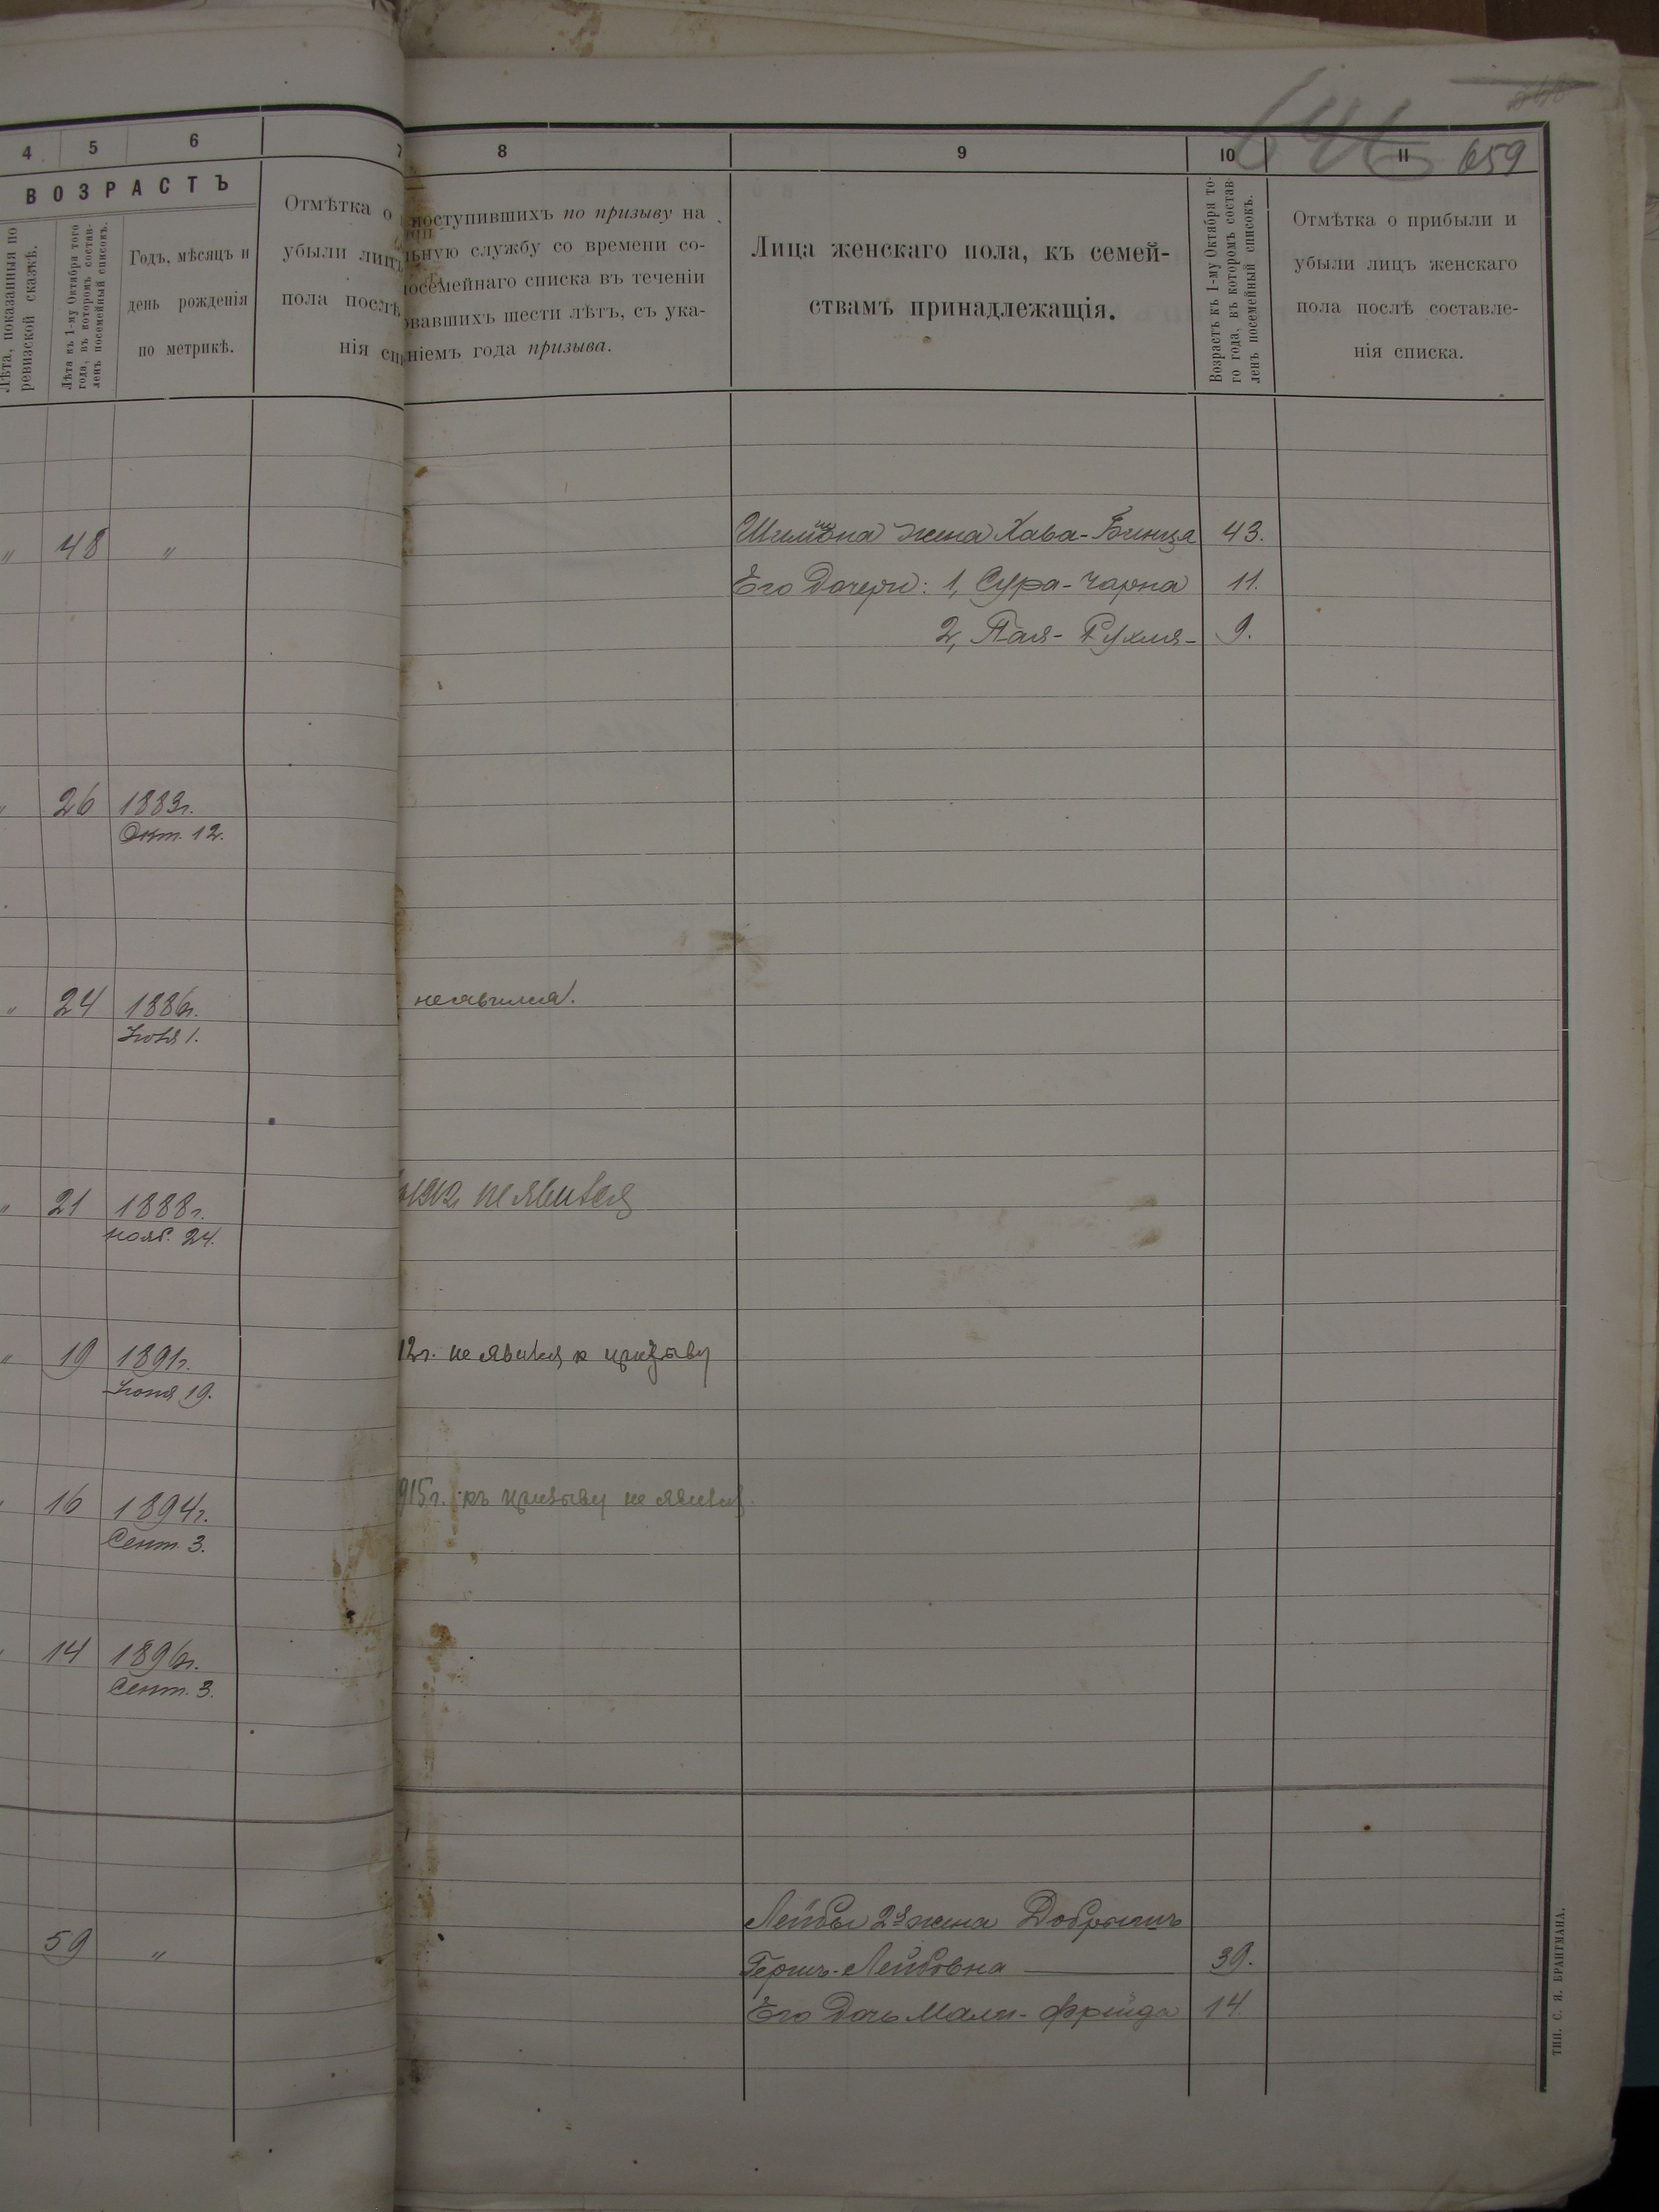 659
4 5 6 7
ВОЗРАСТЪ
Лѣта, показанныя по
ревизской сказкѣ.
Лѣта къ 1-му Октября того
года, въ которомъ состав-
ленъ посемейный списокъ.
Годъ, мѣсяцъ и
день рожденія
по метрикѣ.
Отмѣтка о
убыли лицъ
пола послѣ
нія спи
8 9 10 11
поступившихъ по призыву на
льную службу со времени со-
посемейнаго списка въ теченіи
овавшихъ шести лѣтъ, съ ука-
ніемъ года призыва.
Лица женскаго пола, къ семей-
ствамъ принадлежащія.
Возрастъ къ 1-му Октября то-
го года, въ которомъ состав-
ленъ посемейный списокъ.
Отмѣтка о прибыли и
убыли лицъ женскаго
пола послѣ составле-
нія списка.
" 48 "
жена Хава-Бинця 43.
Его Дочери: 1, Сура-Чарна 11.
2, Пая-Рухля- 9.
" 26 1883г.
Окт. 12.
" 24 1886г.
1.
неявился.
" 21 1888г.
нояб. 24.
не явился
" 19 1891г.
Іюня 19.
12г. не явился к призыву
" 16 1894г.
Сент. 3.
915г. къ призыву не явился.
" 14 1896г.
Сент. 3.
59 "
Лейбы 2я жена Добрышъ
Гершъ-Лейбовна 39.
Его Дочь Мали-Фрейда 14.
ТИП. С. Я. БРАНГМАНА.